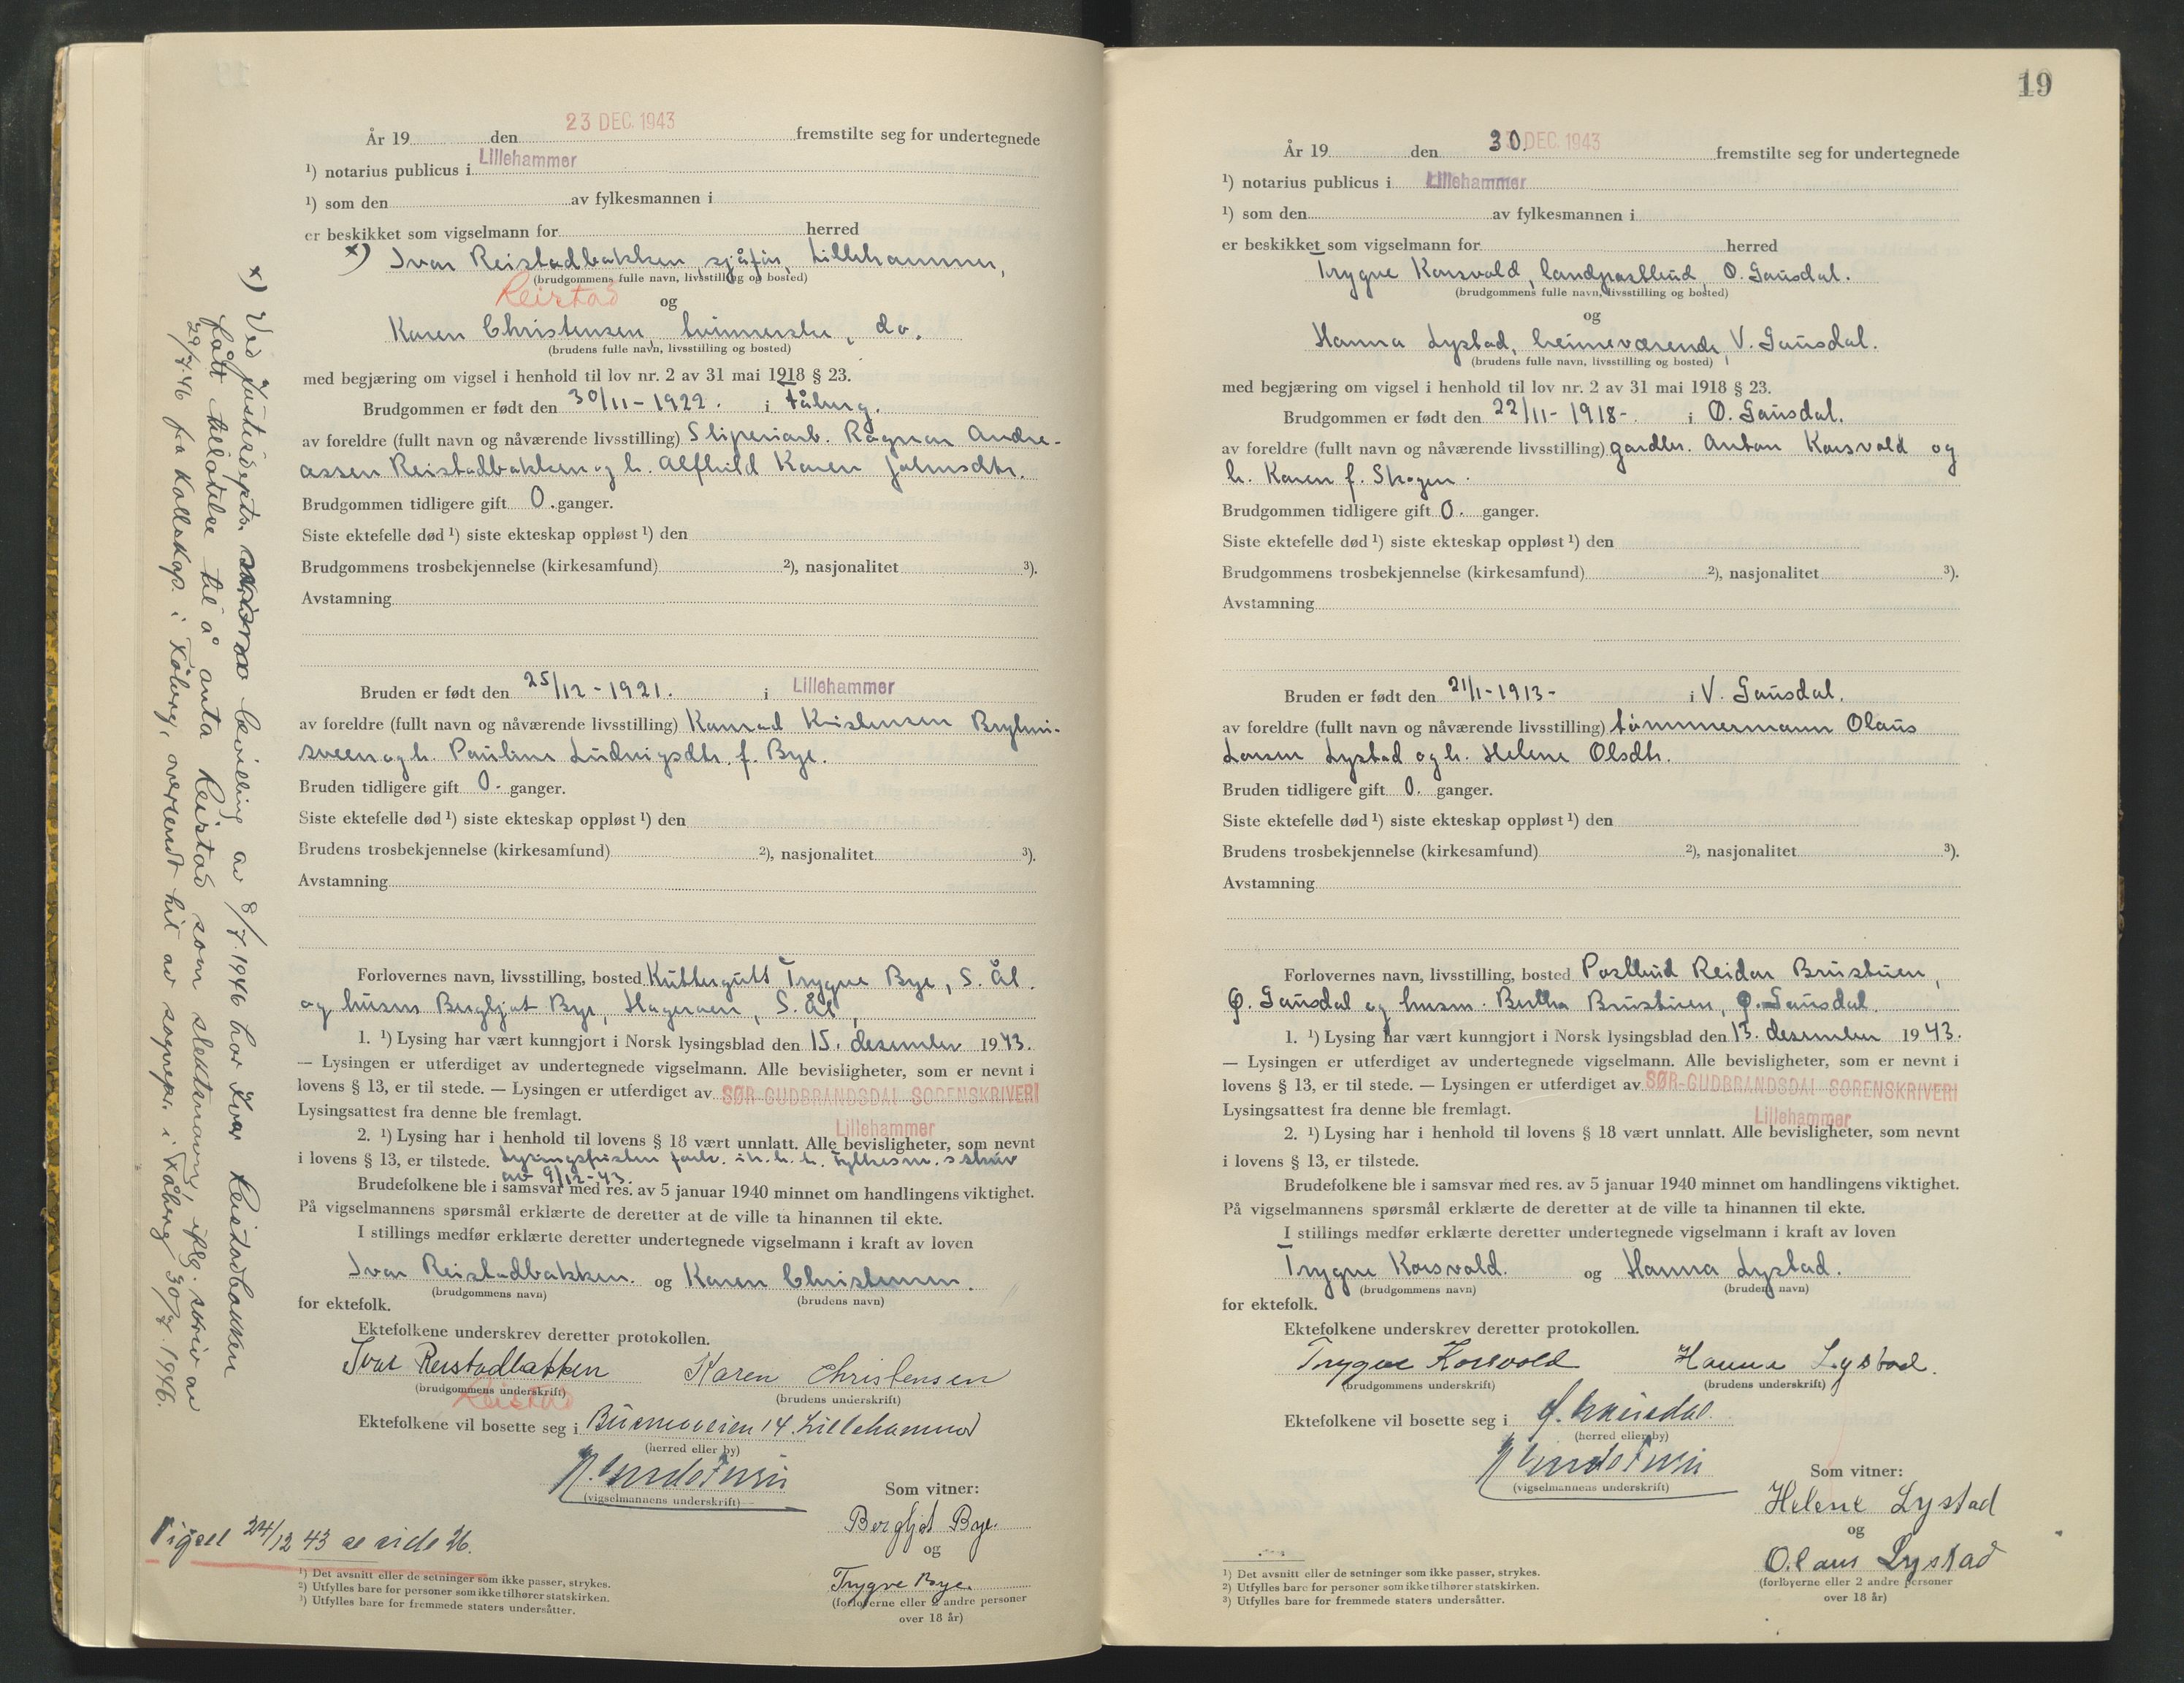 År 19 den 23 DEC. 1943 fremstilte seg for undertegnede
¹) notarius publicus i Lillehammer
¹) som den av fylkesmannen i
er beskikket som vigselmann for herred
x) Ivar Reistadbakken, sjåfør, Lillehammer,
(brudgommens fulle navn, livsstilling og bosted)
Reistad og
Karen Christensen, tvinnerske, do.
(brudens fulle navn, livsstilling og bosted)
med begjæring om vigsel i henhold til lov nr. 2 av 31 mai 1918 § 23.
Brudgommen er født den 30/11 - 1922. i Fåberg.
av foreldre (fullt navn og nåværende livsstilling) Sliperiarb. Ragnar Andre-
assen Reistadbakken og h. Alfhild Karen Johnsdtr.
Brudgommen tidligere gift 0. ganger.
Siste ektefelle død ¹) siste ekteskap oppløst ¹) den
Brudgommens trosbekjennelse (kirkesamfund) ²), nasjonalitet ³).
Avstamning
Bruden er født den 25/12 - 1921. i Lillehammer
av foreldre (fullt navn og nåværende livsstilling) Konrad Kristensen Bryhni-
sveen og h. Pauline Ludvigsdtr. f. Bye.
Bruden tidligere gift 0. ganger.
Siste ektefelle død ¹) siste ekteskap oppløst ¹) den
Brudens trosbekjennelse (kirkesamfund) ²), nasjonalitet ³).
Avstamning
Forlovernes navn, livsstilling, bosted Kuttergutt Trygve Bye, S. Ål.
og husm Bergljot Bye, Hageroen, S. Ål,
1. ¹) Lysing har vært kunngjort i Norsk lysingsblad den 15. desember 1943.
— Lysingen er utferdiget av undertegnede vigselmann. Alle bevisligheter, som er nevnt i
lovens § 13, er til stede. — Lysingen er utferdiget av SØR-GUDBRANDSDAL SORENSKRIVERI
Lysingsattest fra denne ble fremlagt.
Lillehammer
2. ¹) Lysing har i henhold til lovens § 18 vært unnlatt. Alle bevisligheter, som nevnt
i lovens § 13, er tilstede. Lysingsfristen fork. i h. h. t. Fylkesm. s skriv
av 9/12-43.
Brudefolkene ble i samsvar med res. av 5 januar 1940 minnet om handlingens viktighet.
På vigselmannens spørsmål erklærte de deretter at de ville ta hinannen til ekte.
I stillings medfør erklærte deretter undertegnede vigselmann i kraft av loven
Ivar Reistadbakken. og Karen Christensen.
(brudgommens navn) (brudens navn)
for ektefolk.
Ektefolkene underskrev deretter protokollen.
Ivar Reistadbakken Karen Christensen
(brudgommens underskrift) (brudens underskrift)
Reistad
Ektefolkene vil bosette seg i Buermoveien 14. Lillehammer
(herred eller by)
(vigselmannens underskrift)
Som vitner:
Bergljot Bye.
og
Trygve Bye.
(forloverne eller 2 andre personer
over 18 år)
Vigsel 24/12 43 se side 26.
¹) Det avsnitt eller de setninger som ikke passer, strykes.
²) Utfylles bare for personer som ikke tilhører statskirken.
³) Utfylles bare for fremmede staters undersåtter.
x) Ved Justisdepts. bevilling av 8/7. 1946 har Ivar Reistadbakken
fått tillatelse til å anta Reistad som slektsnavn, ifLg. skriv av
29/7. 46 fra Folleskap. i Fåberg, oversendt hit av sognepr. i Fåberg 30/7. 1946.
19
År 19 den 30. DEC. 1943 fremstilte seg for undertegnede
¹) notarius publicus i Lillehammer
¹) som den av fylkesmannen i
er beskikket som vigselmann for herred
Trygve Korsvold, landpostbud, Ø. Gausdal.
(brudgommens fulle navn, livsstilling og bosted)
og
Hanna Lystad, heimeværende, V. Gausdal.
(brudens fulle navn, livsstilling og bosted)
med begjæring om vigsel i henhold til lov nr. 2 av 31 mai 1918 § 23.
Brudgommen er født den 22/11 - 1918 - i Ø. Gausdal.
av foreldre (fullt navn og nåværende livsstilling) gardbr. Anton Korsvold og
h. Karen f. Skogen.
Brudgommen tidligere gift 0. ganger.
Siste ektefelle død ¹) siste ekteskap oppløst ¹) den
Brudgommens trosbekjennelse (kirkesamfund) ²), nasjonalitet ³).
Avstamning
Bruden er født den 21/1 - 1913 - i V. Gausdal.
av foreldre (fullt navn og nåværende livsstilling) tømmermann Olaus
Larsen Lystad og h. Helene Olsdtr.
Bruden tidligere gift 0. ganger.
Siste ektefelle død ¹) siste ekteskap oppløst ¹) den
Brudens trosbekjennelse (kirkesamfund) ²), nasjonalitet ³).
Avstamning
Forlovernes navn, livsstilling, bosted Postbud Reidar Brustuen,
Ø. Gausdal og husm. Bertha Brustuen, Ø. Gausdal.
1. ¹) Lysing har vært kunngjort i Norsk lysingsblad den 13. desember 1943.
— Lysingen er utferdiget av undertegnede vigselmann. Alle bevisligheter, som er nevnt i
lovens § 13, er til stede. — Lysingen er utferdiget av SØR-GUDBRANDSDAL SORENSKRIVERI
Lysingsattest fra denne ble fremlagt.
Lillehammer
2. ¹) Lysing har i henhold til lovens § 18 vært unnlatt. Alle bevisligheter, som nevnt
i lovens § 13, er tilstede.
Brudefolkene ble i samsvar med res. av 5 januar 1940 minnet om handlingens viktighet.
På vigselmannens spørsmål erklærte de deretter at de ville ta hinannen til ekte.
I stillings medfør erklærte deretter undertegnede vigselmann i kraft av loven
Trygve Korsvold. og Hanna Lystad.
(brudgommens navn) (brudens navn)
for ektefolk.
Ektefolkene underskrev deretter protokollen.
Trygve Korsvold Hanna Lystad.
(brudgommens underskrift) (brudens underskrift)
Ektefolkene vil bosette seg i Ø. Gausdal.
(herred eller by)
(vigselmannens underskrift)
Som vitner:
Helene Lystad
og
Olaus Lystad
(forloverne eller 2 andre personer
over 18 år)
¹) Det avsnitt eller de setninger som ikke passer, strykes.
²) Utfylles bare for personer som ikke tilhører statskirken.
³) Utfylles bare for fremmede staters undersåtter.